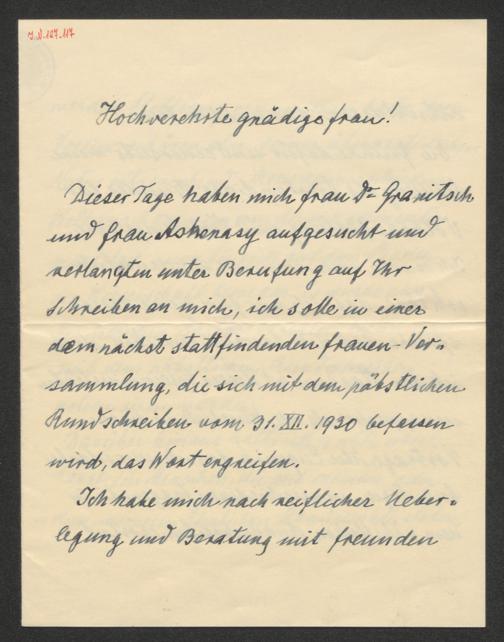 I.N. 127.117
Hochverehrte gnädige frau!
Dieser Tage haben mich frau Dr. Granitsch
und frau Askenasy aufgesucht und
verlangten unter Berufung auf Ihr
Schreiben an mich, ich solle in einer
demnächst stattfindenden frauen-Ver-
sammlung, die sich mit dem päbstlichen
Rundschreiben vom 31. XII. 1930 befassen
wird, das Wort ergreifen.
Ich habe mich nach reiflicher Ueber-
legung und Beratung mit freunden